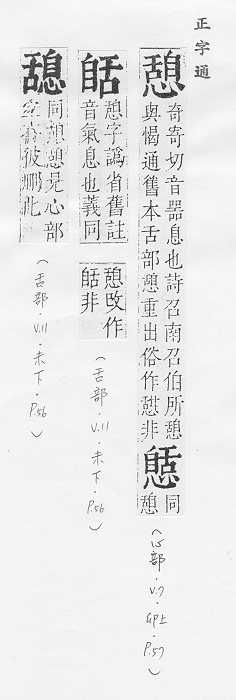 正字通
憩
奇寄切音器息也詩召南召伯所憩
與愒通舊本舌部憩重出俗作憇非
同
憩
(心部·V.7·卯上·P.57)
憩字譌省舊註
音氣息也義同
憩改作
非
(舌部·V.11·未下·P.56)
同憩憩見心部
彼刪此
(舌部·V.11·未下·P.56)